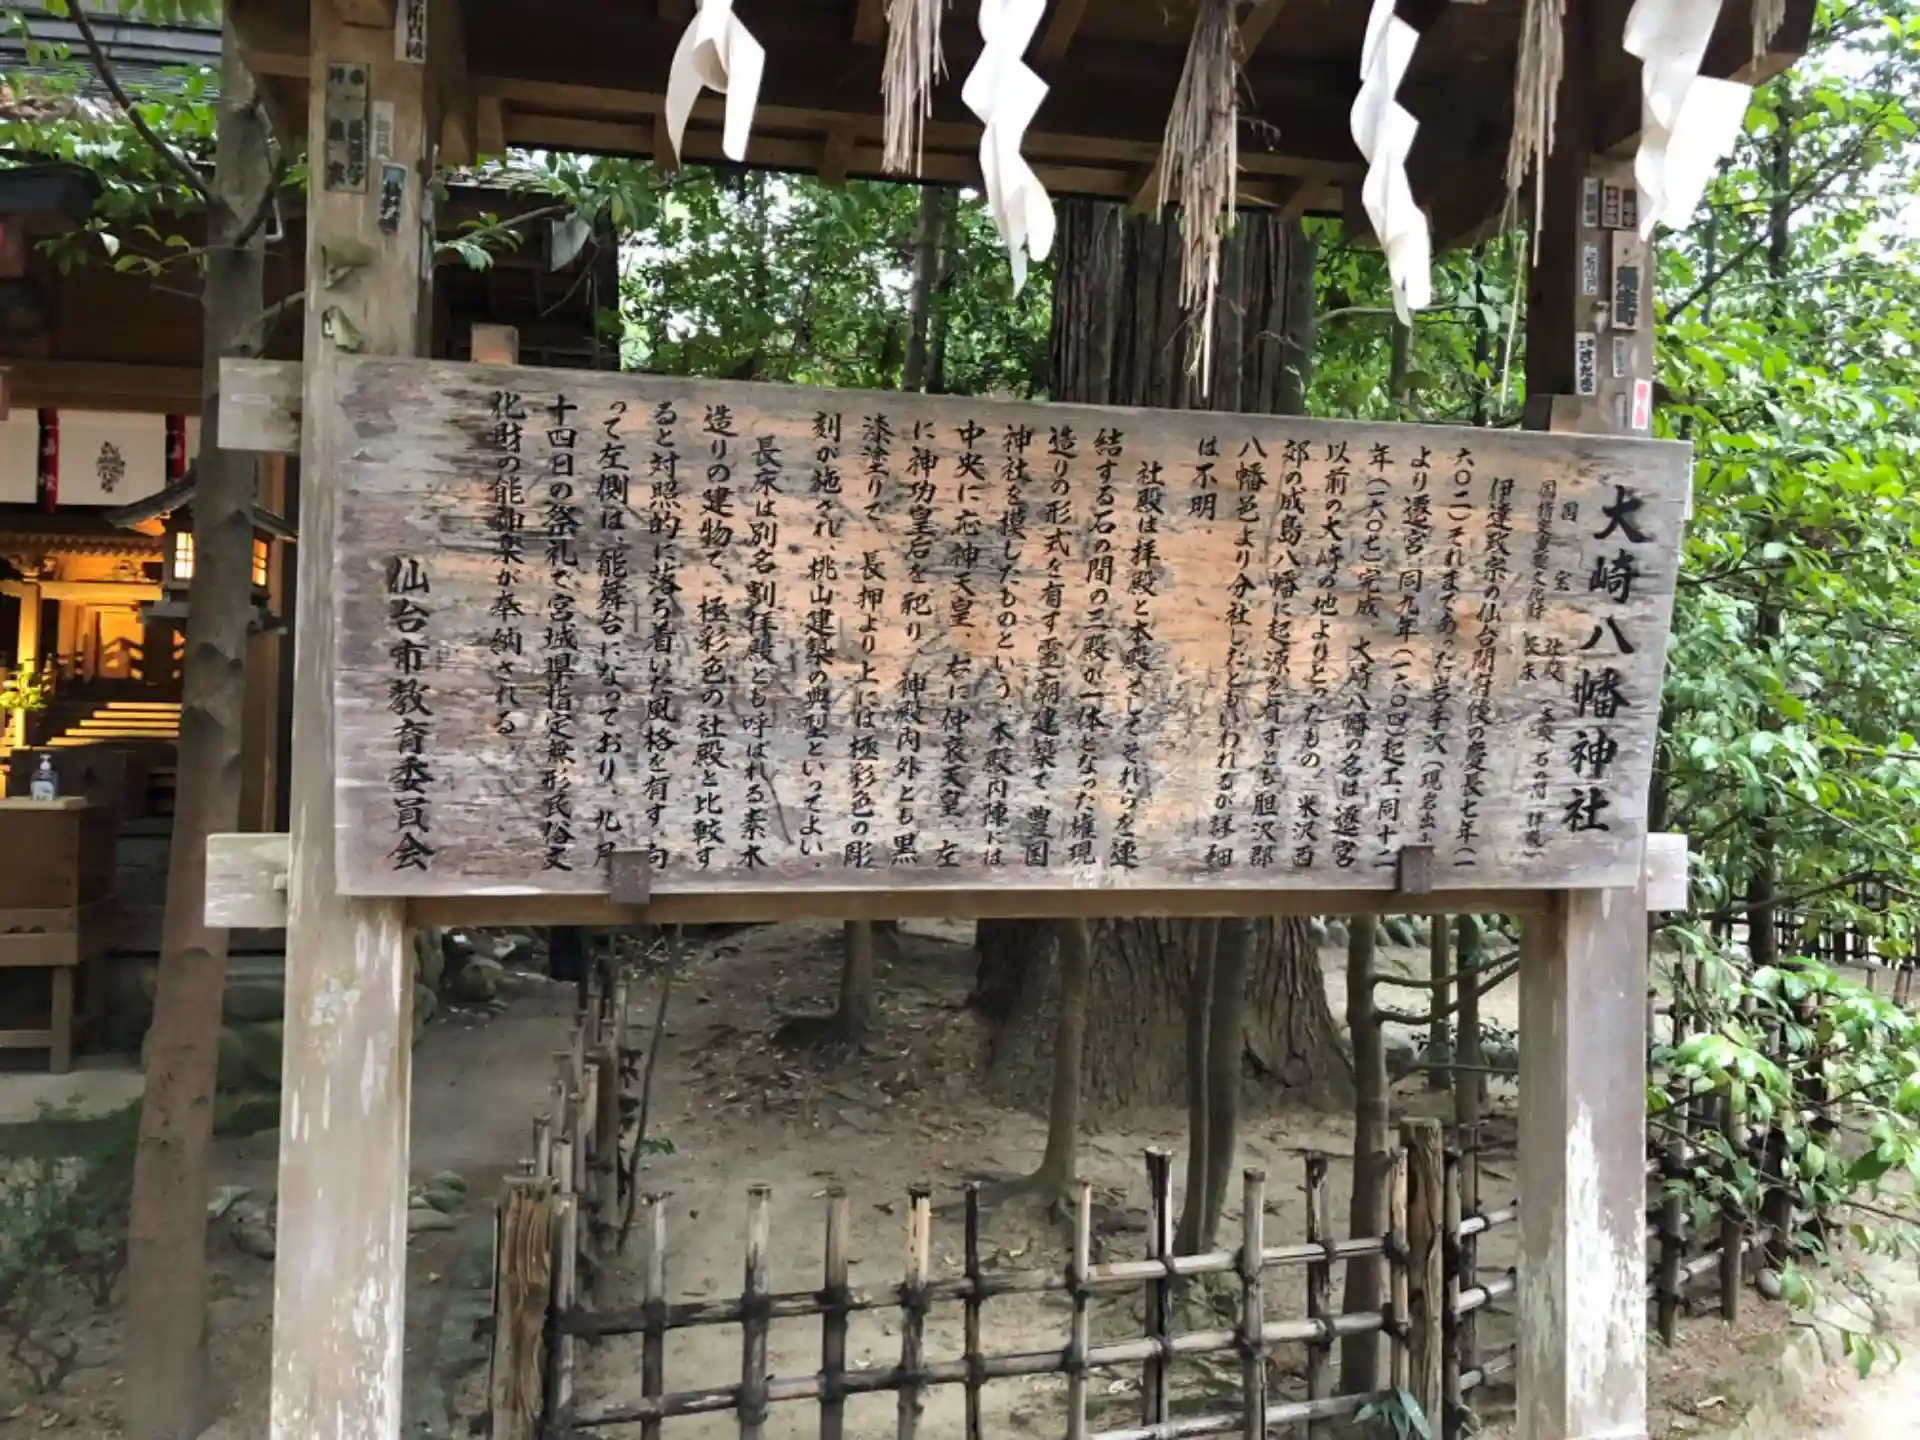 大崎八幡神社
国宝 社殿(本殿、石の間、拝殿)
国指定重要文化財 長床
伊達政宗の仙台開府後の慶長七年(一
六〇二)それまであった岩手沢(現岩出山)
より遷宮、同九年(一六〇四)起工、同十二
年(一六〇七)完成、大崎八幡の名は遷宮
以前の大崎の地よりとったもの、米沢西
郊の成島八幡に起源を有すとも胆沢郡
八幡邑より分社したともいわれるが詳細
は不明.
社殿は拝殿と本殿そしてそれらを連
結する石の間の三殿が一体となった権現
造りの形式を有す霊廟建築で、豊国
神社を模したものという、本殿内陣には
中央に応神天皇、右に仲哀天皇、左
に神功皇后を祀り、神殿内外とも黒
漆塗りで、長押より上には極彩色の彫
刻が施され、桃山建築の典型といってよい.
長床は別名割拝殿とも呼ばれる素木
造りの建物で、極彩色の社殿と比較す
ると対照的に落ち着いた風格を有す.向
って左側は、能舞台になっており、九月
十四日の祭礼で、宮城県指定無形民俗文
化財の能神楽が奉納される.
仙台市教育委員会